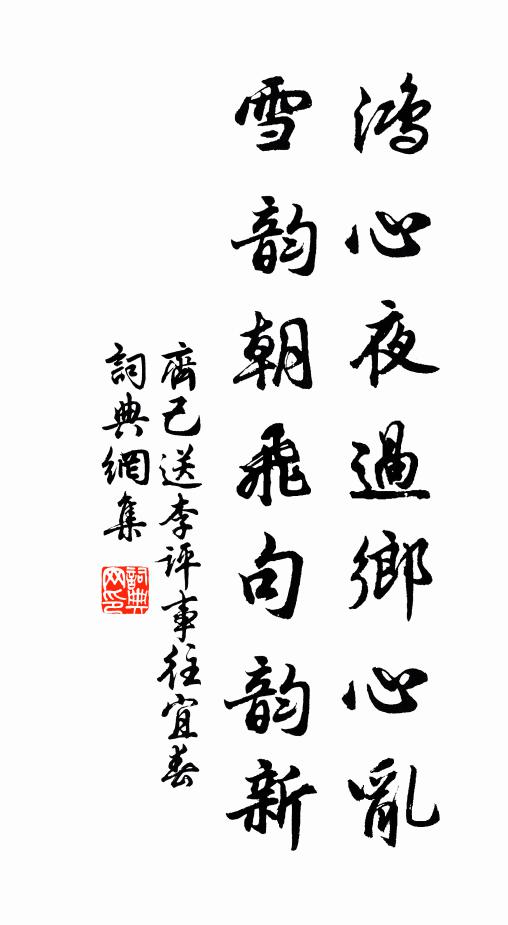 鴻心夜過鄉心亂
雪韵朝飛句韵新
齊己送李評事往宜春
詞典網集
詞典網印